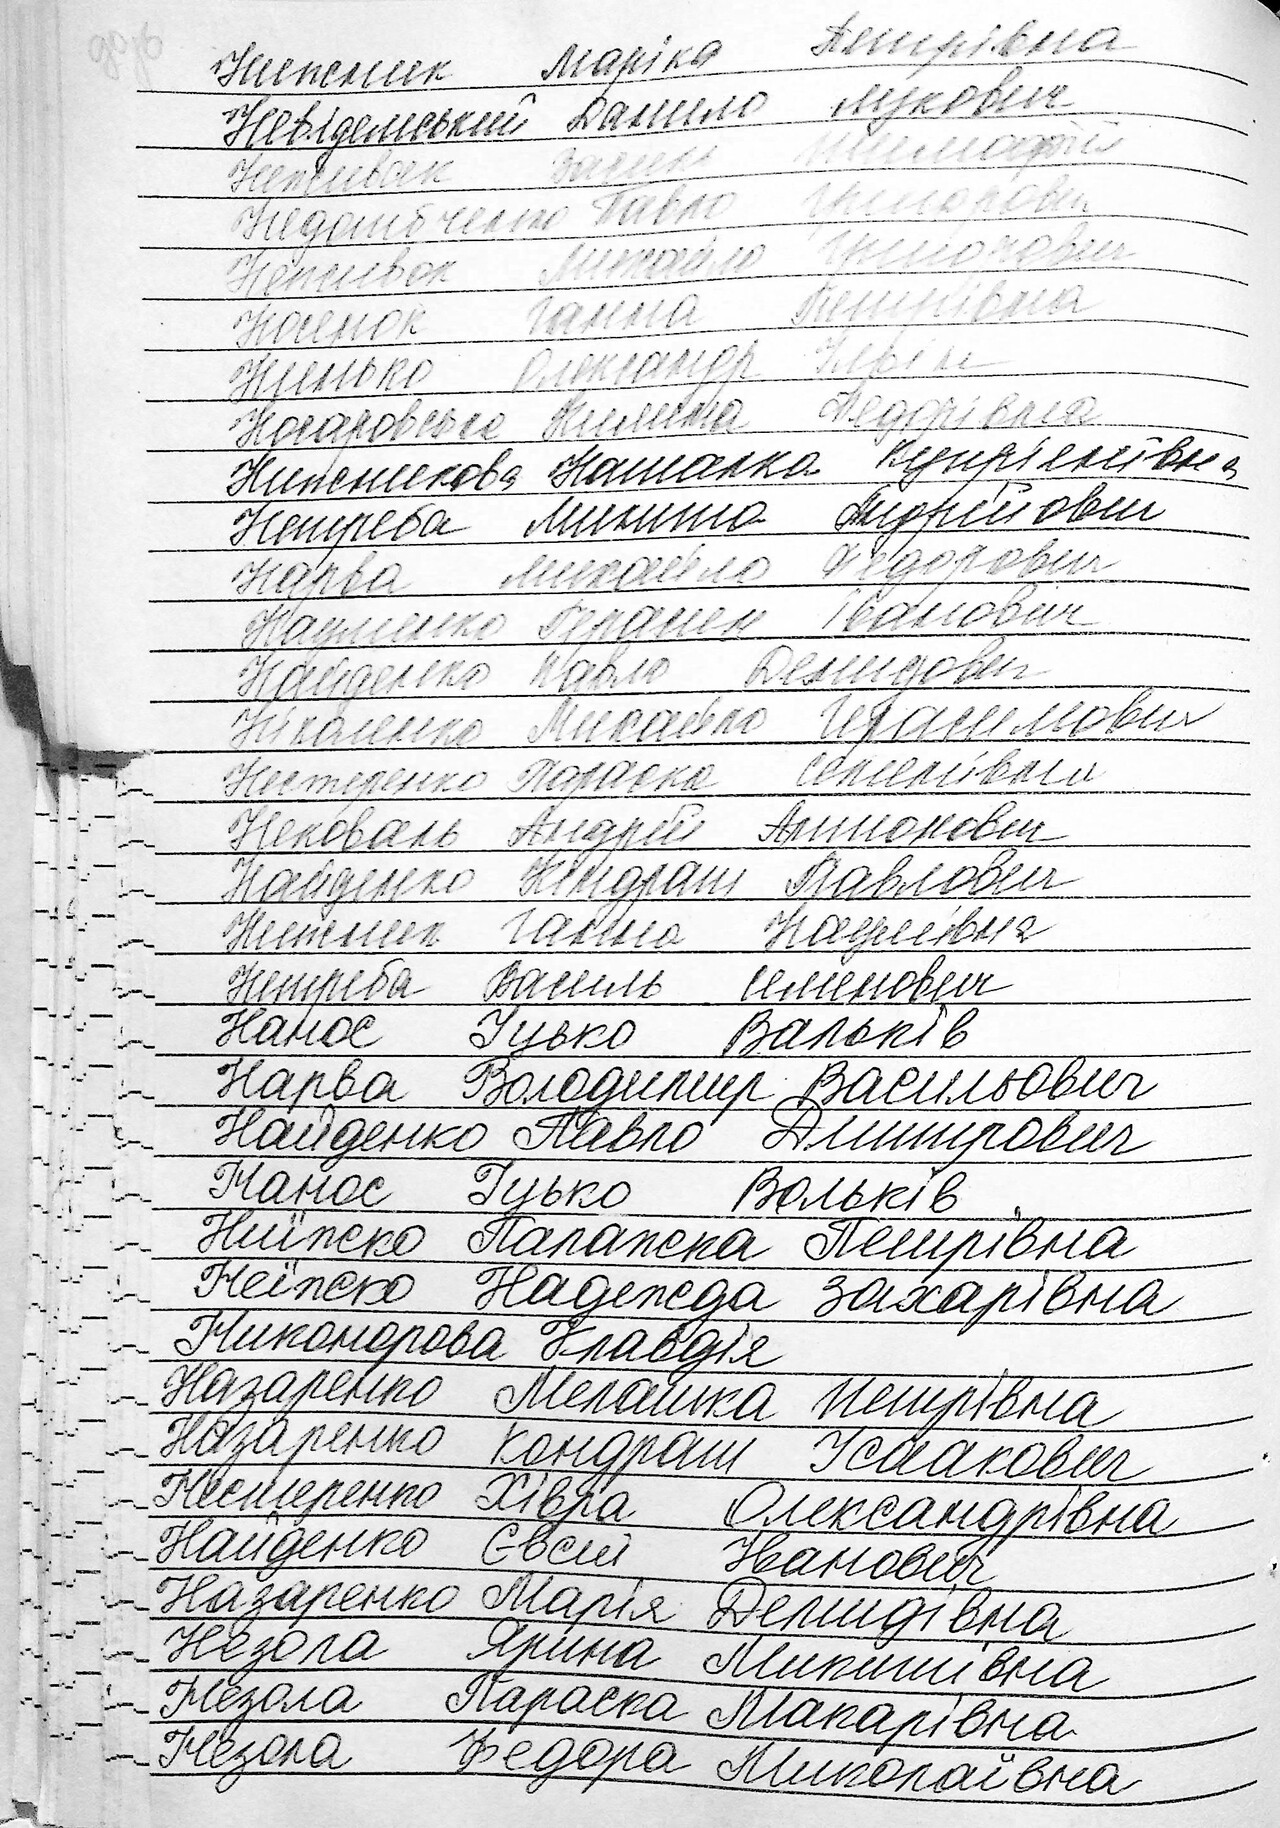 Нижник Маріка Петрівна
Невідемський Данило Лукович
Неживок Тимофій
Недошбченко Павло Григорович
Неживок Михайло Григорович
Носенок Ганна Петрівна
Нинько Олександр Ілліч
Носаровська Килина Федорівна
Нижникова Наталка Купріянівна
Нетреба Микита Андрійович
Нарва Михайло Федорович
Науменко Герасим Іванович
Найденко Павло Демидович
Ніколенко Михайло Герасимович
Нестеренко Параска Семенівна
Нековаль Андрій Антонович
Найденко Кіндрат Павлович
Нижник Ганна Наумівна
Нетреба Василь Семенович
Нанос Іцько Вальків
Нарва Володимир Васильович
Найденко Павло Дмитрович
Нанос Іцько Вольків
Ниїжко Палажка Петрівна
Неїжко Надежда Захарівна
Никонорова Клавдія
Назаренко Мелашка Петрівна
Назаренко Кондрат Ісаакович
Нестеренко Хівра Олександрівна
Найденко Євсій Іванович
Назаренко Марія Демидівна
Незола Ярина Микитівна
Незола Параска Макарівна
Незола Федора Миколаївна